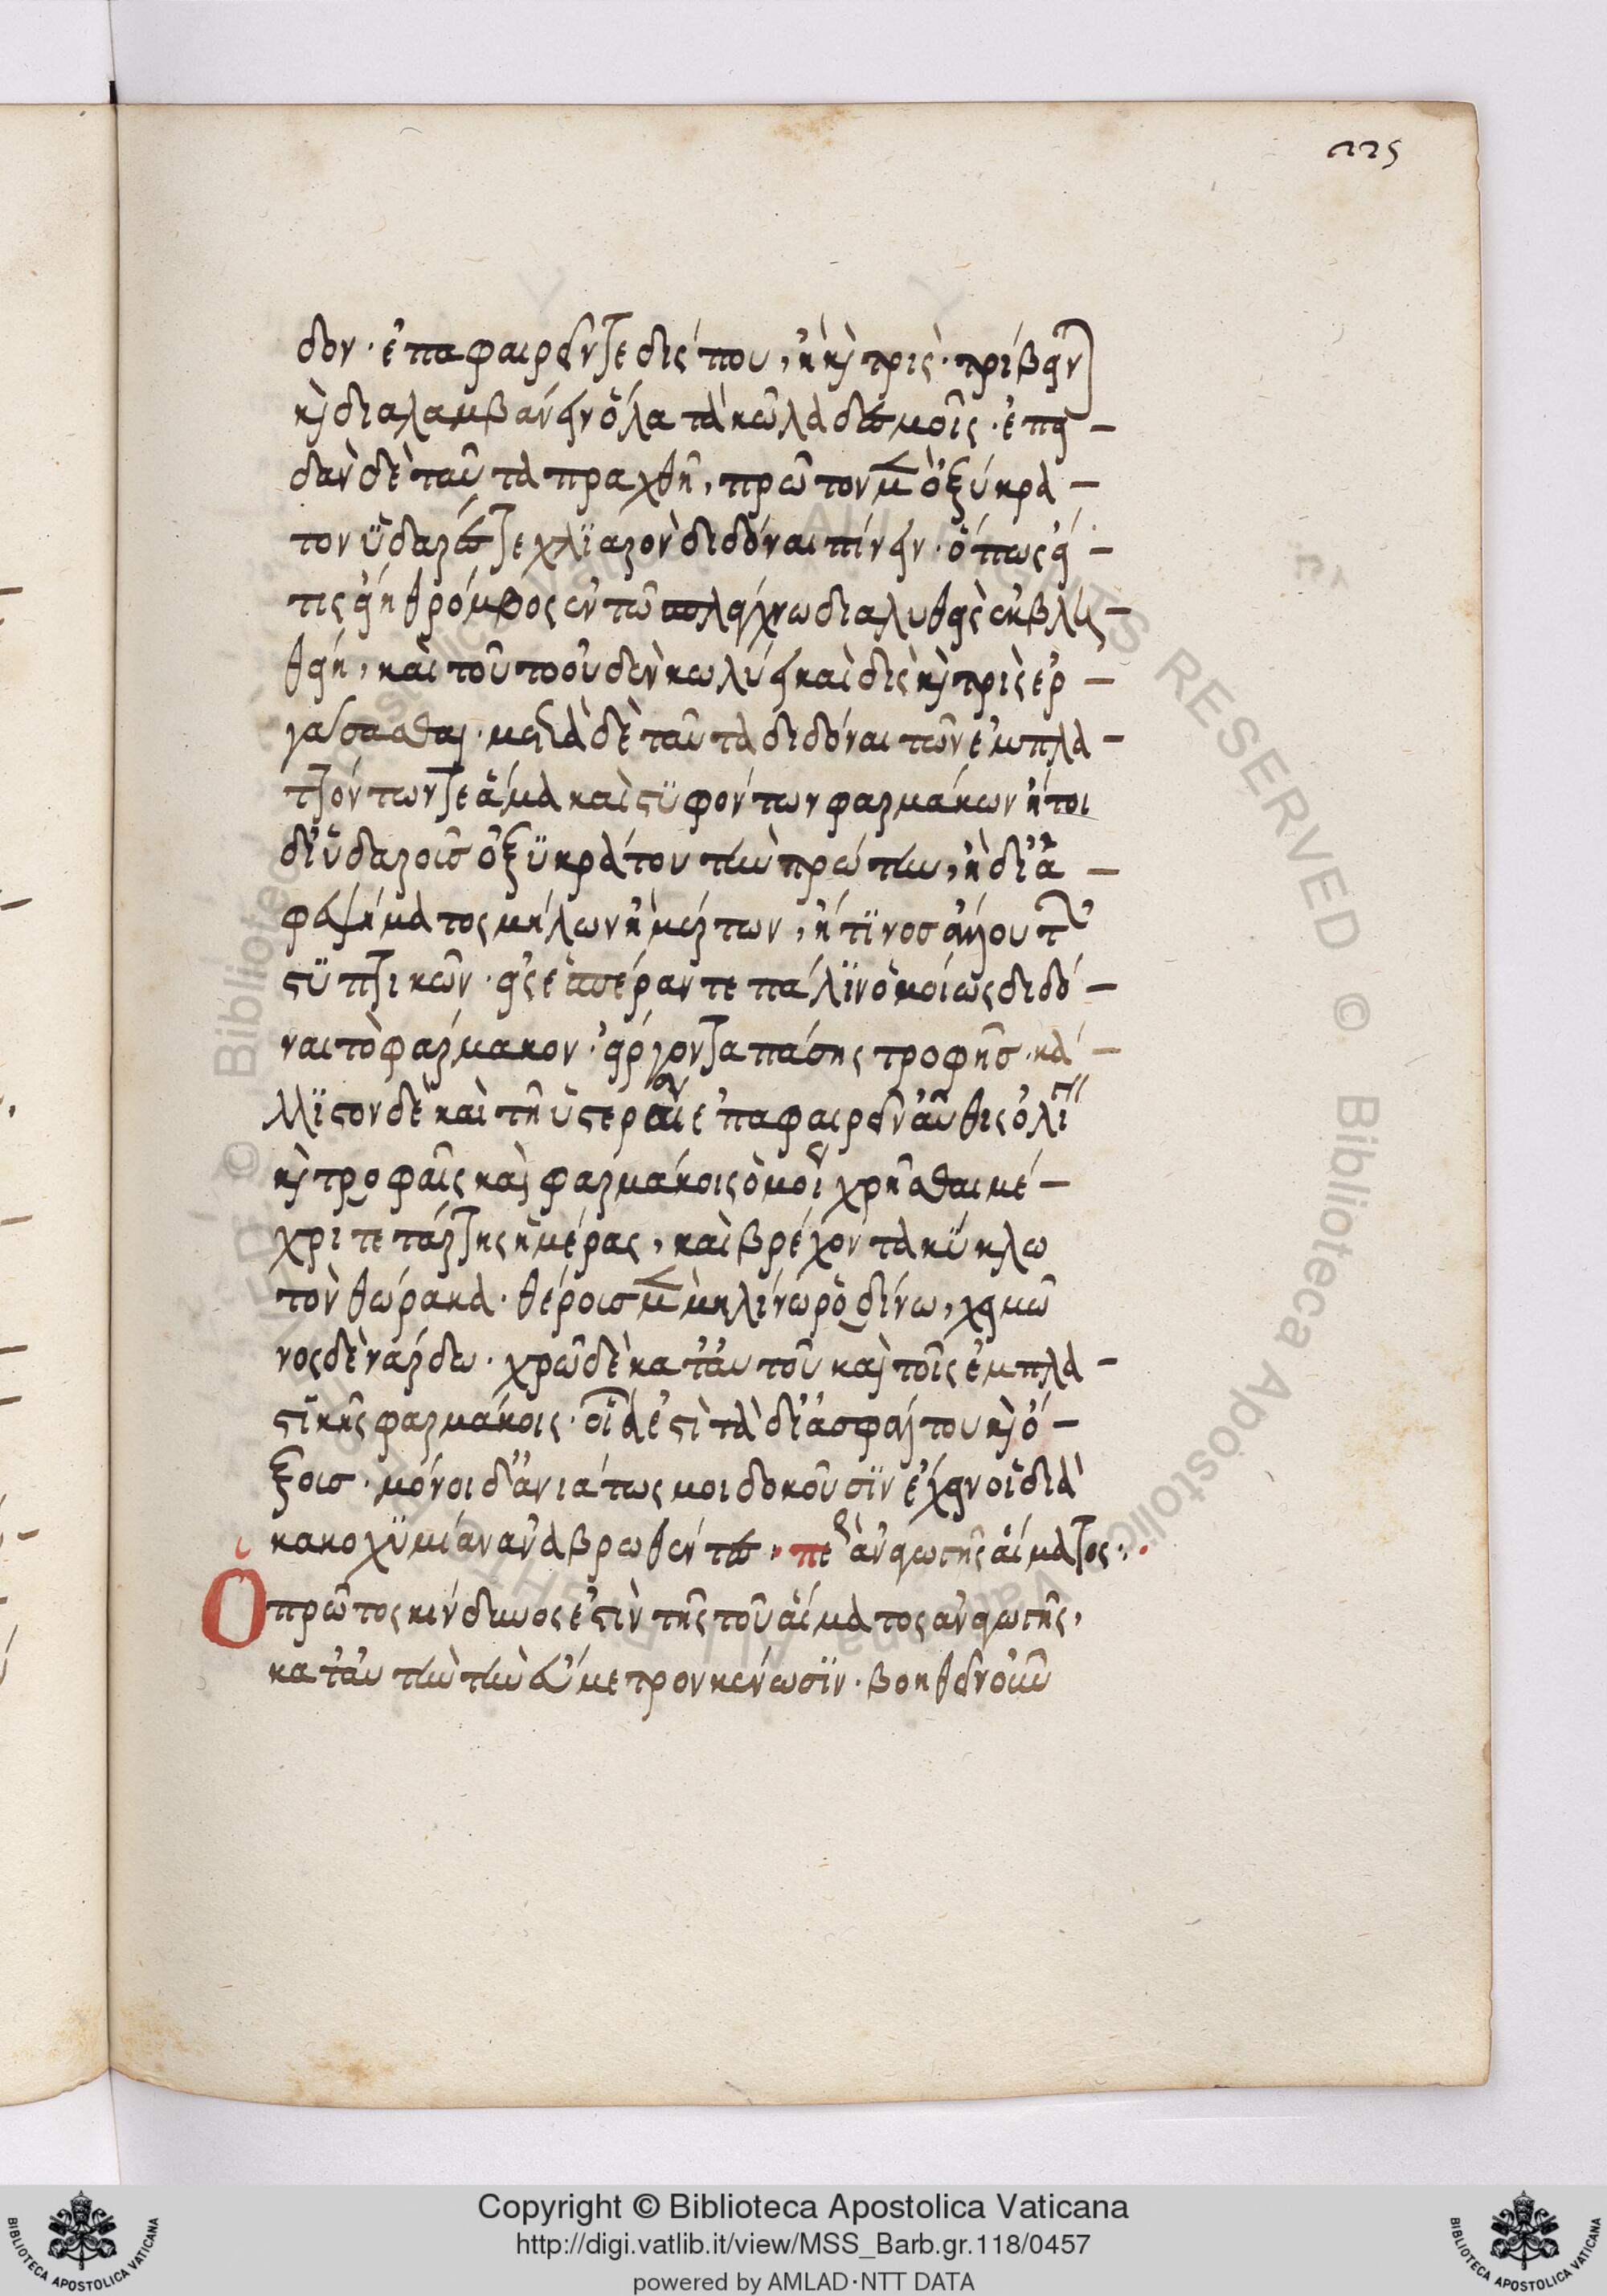 225
δον· ἐπαφαιρεῖν τε δίς που, ἢ καὶ τρὶς· τρίβειν
καὶ διαλαμβάνειν ὅλα τὰ κῶλα δεσμοῖς· ἐπει-
δὰν δὲ ταῦτα πραχθῆ, πρῶτον μὲν ὀξύκρα-
τον ὑδαρές τε χλϊαρὸν διδόναι πίνειν· ὅπως εἴ-
τις εἴη θρόμβος ἐν τῶ σπλάγχνω διαλυθεὶς ἐκβλη-
θείη, καὶ τοῦτο οὐδὲν κωλύει καὶ δὶς καὶ τρὶς ἐρ-
γάσασθαι· μετὰ δὲ ταῦτα διδόναι τῶν ἐμπλα-
τόντων τε ἅμα καὶ στϋφόντων φαρμάκων ἤτοι
δι' ὑδαροῦς ὀξϋκράτου τὴν πρώτην, ἢ δι' ἀ-
φεψήματος μήλων ἢ μύρτων, ἤ τϊνος ἄλλου τῶν
στϋπτικῶν· εἰς ἑσπέραν τε πάλϊν ὁμοίως διδό-
ναι τὸ φάρμακον· εἴργοντα πάσης τροφῆς· κά-
λλϊστον δὲ καὶ τῆ ὑστεραία ἐπαφαιρεῖν αὖθις ὀλίγον
καὶ τροφαῖς καὶ φαρμάκοις ὁμοίοις χρῆσθαι μέ-
χρι τετάρτης ἡμέρας, καὶ βρέχοντα κύκλω
τὸν θώρακα· θέρους μὲν μηλίνω ῥοδίνω, χειμῶ
νος δὲ νάρδω· χρῶ δὲ κατ' αὐτοῦ καὶ τοῖς ἐμπλα-
στϊκοῖς φαρμάκοις· οἷά ἐστι τὰ δι' ἀσφάλτου καὶ ὄ-
ξους· μόνοι δ' ἀνιάτως μοι δοκοῦσϊν ἔχειν οἱ διὰ
κακοχϋμίαν ἀναβρωθέντες· περὶ ἀναγωγῆς αἵματος·
Ὁ πρῶτος κίνδυνός ἐστιν τῆς τοῦ αἵματος ἀναγωγῆς,
κατ' αὐτὴν τὴν ἄμετρον κένωσϊν· βοηθεῖν οὖν
Copyright © Biblioteca Apostolica Vaticana
http://digi.vatlib.it/view/MSS_Barb.gr.118/0457
powered by AMLAD·NTT DATA
BIBLIOTECA APOSTOLICA VATICANA
BIBLIOTECA APOSTOLICA VATICANA